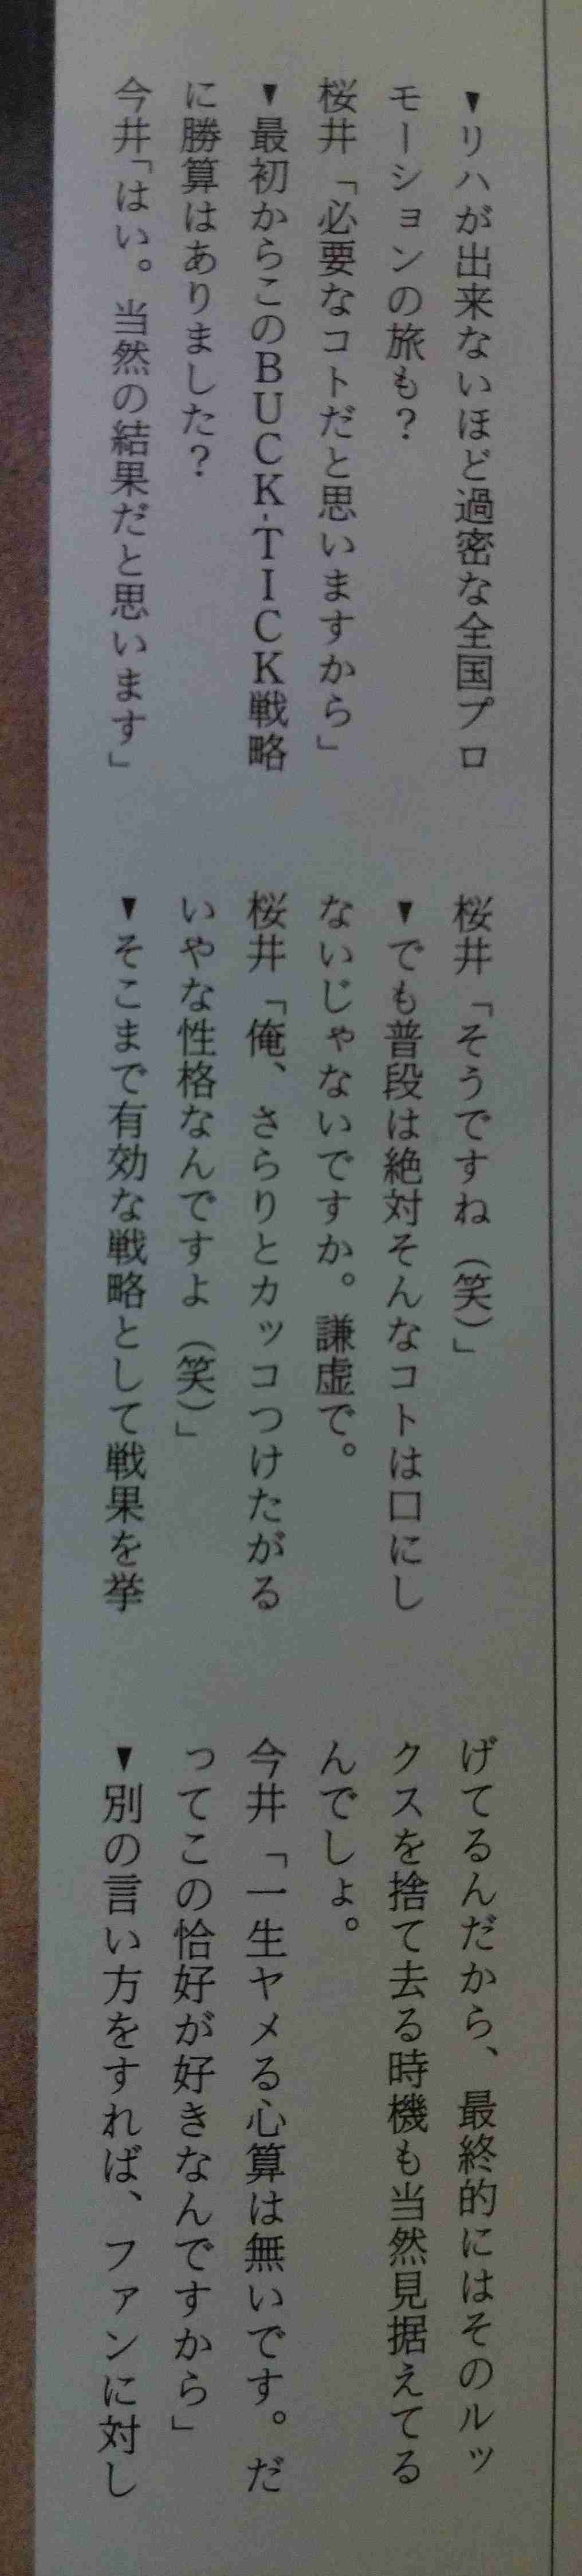 ▼リハが出来ないほど過密な全国プロ
モーションの旅も？
桜井「必要なコトだと思いますから」
▼最初からこのBUCK-TICK戦略
に勝算はありました？
今井「はい。当然の結果だと思います」
桜井「そうですね（笑）」
▼でも普段は絶対そんなコトは口にし
ないじゃないですか。謙虚で。
桜井「俺、さらりとカッコつけたがる
いやな性格なんですよ（笑）」
▼そこまで有効な戦略として戦果を挙
げてるんだから、最終的にはそのルッ
クスを捨て去る時機も当然見据えてる
んでしょ。
今井「一生ヤメる心算は無いです。だ
ってこの恰好が好きなんですから」
▼別の言い方をすれば、ファンに対し